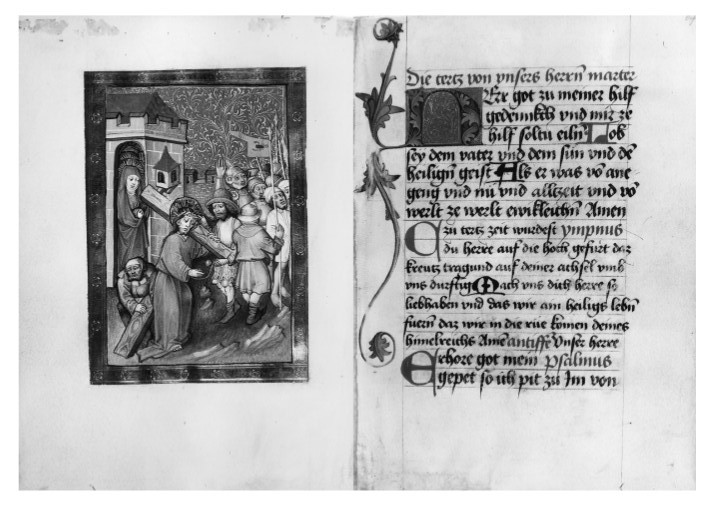 Die tertz von vnsers herrn marter
Herr got zu meiner hilf
gedennkch vnd mir ze
hilf soltu eiln Lob
sey dem vater vnd dem sun vnd dē
heiligen geist Als er was vō ane
geng vnd nu vnd alltzeit vnd vō
werlt ze werlt ewikleichn̄ Amen
Czu tertz zeit wurdest ympnus
du herre auf die hoch gefurt daz
kreutz tragund auf deiner achsel vmb
vns durftig Mach vns dich herre so
liebhaben vnd das wir am heiligs lebn̄
fuern daz wir in die rue komen deines
himelreichs Ame antiffē Vnser herre
Erhore got mein Psalmus
gepet so ich pit zu Im von